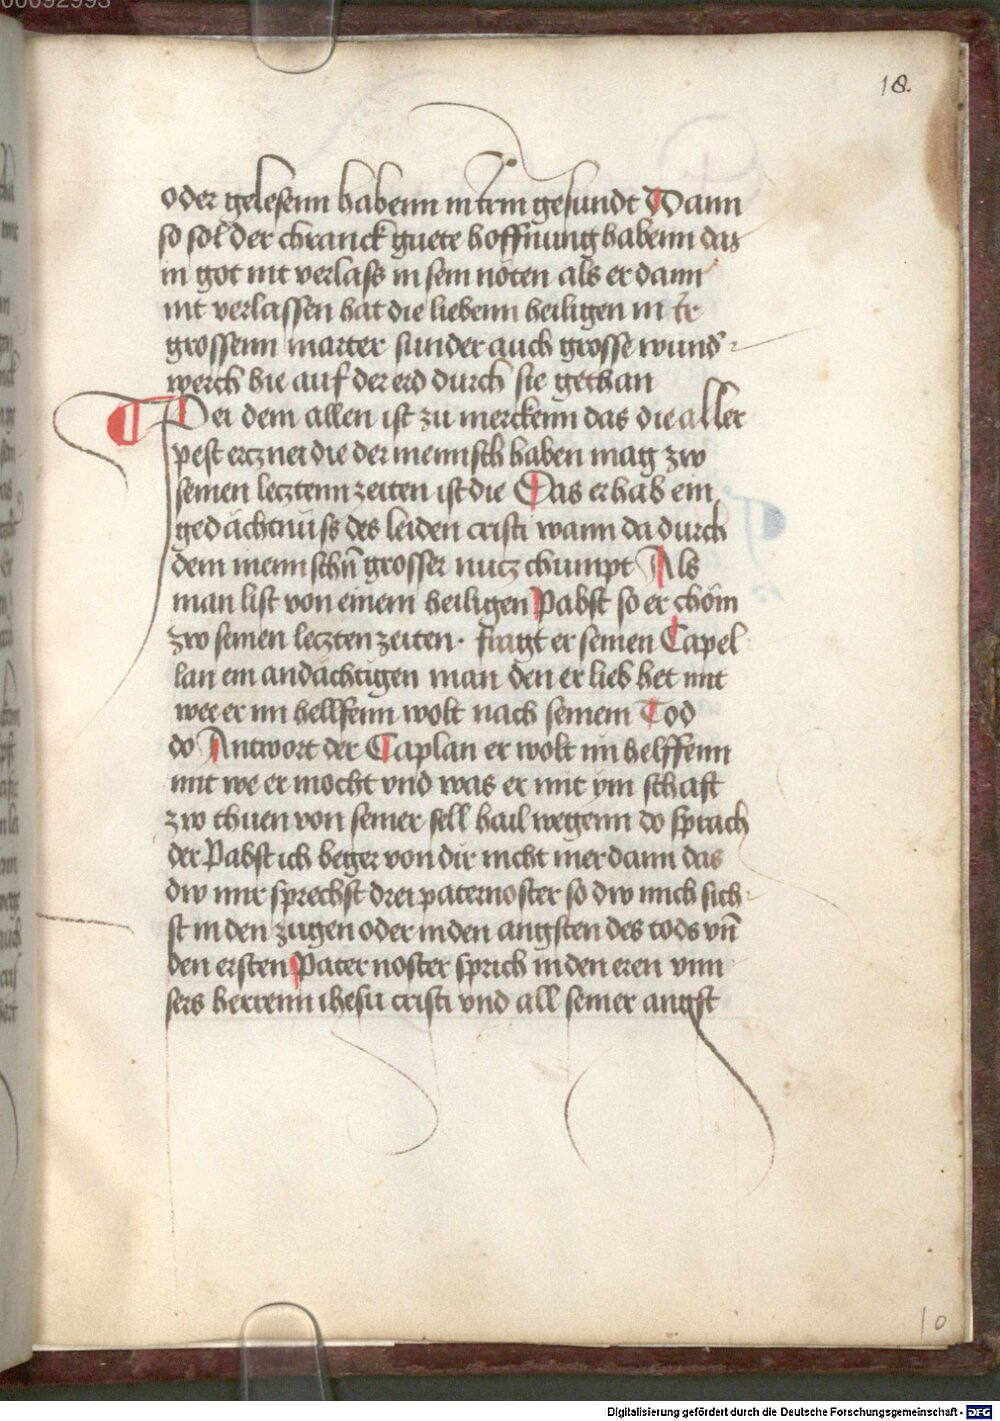 18.
oder gelesenn habenn in irm gesundt Wann
so sol der chranck guete hoffnung habenn das
in got nit verlass in sein nöten als er dann
nit verlassen hat die liebenn heiligen in ir
grossenn marter sunder auch grosse wund
werch hie auf der erd durch sie gethan
Pei dem allen ist zu merckenn das die aller
pest ercznei die der mennsch haben mag zw
seinen lecztenn zeiten ist die Das er hab ein
gedächtnüss des leiden cristi wann da durch
dem mennschn̄ grosser nucz chumpt Als
man list von einem heiligen Pabst so er chöm
zw seinen leczten zeiten · fragt er seinen Capel
lan ein andächtigen man den er lieb het mit
wee er im hellfenn wolt nach seinem Tod
do Antwort der Caplan er wolt im helffenn
mit we er mocht vnd was er mit ym schaft
zw thuen von seiner sell hail wegenn do sprach
der Pabst ich beger von dir nicht mer dann das
dw mir sprechst drei paternoster so dw mich sich
st in den zugen oder in den angsten des tods vn̄
den ersten Pater noster sprich in den eren vnn
sers herrenn ihesu cristi vnd all seiner angst
10
Digitalisierung gefördert durch die Deutsche Forschungsgemeinschaft - DFG